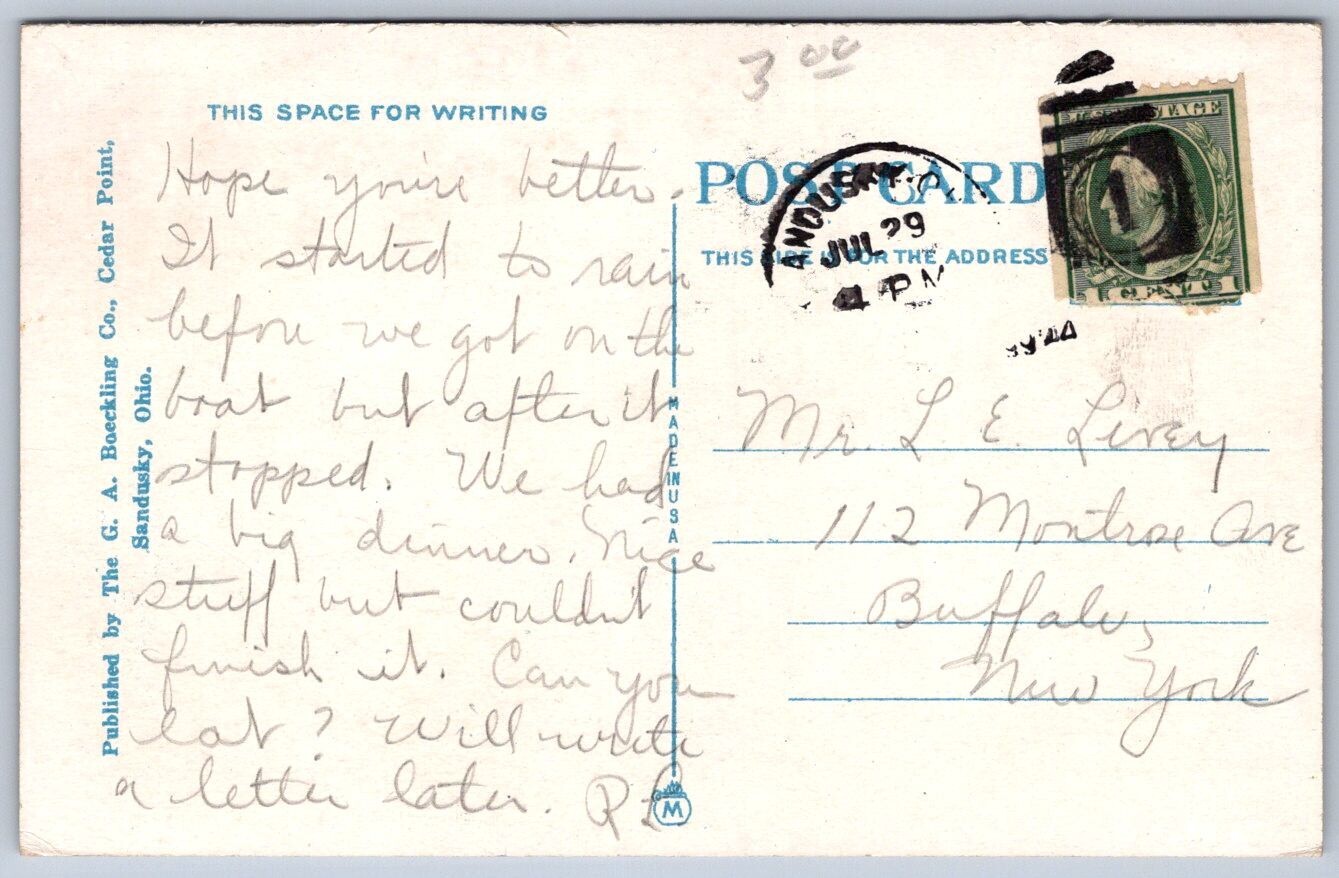 3 00
THIS SPACE FOR WRITING
Published by The G. A. Boeckling Co., Cedar Point,
Sandusky, Ohio.
Hope you're better.
It started to rain
before we got on the
boat but after it
stopped. We had
a big dinner. Nice
stuff but couldn't
finish it. Can you
eat? Will write
a letter later. R L
MADE IN USA
M
POST CARD
THIS SIDE IS FOR THE ADDRESS
ANDUSKY, O.
JUL 29
4 PM
POSTAGE
1 CENT 1
1
Mr. L E. Levey
112 Montrose Ave
Buffalo,
New York